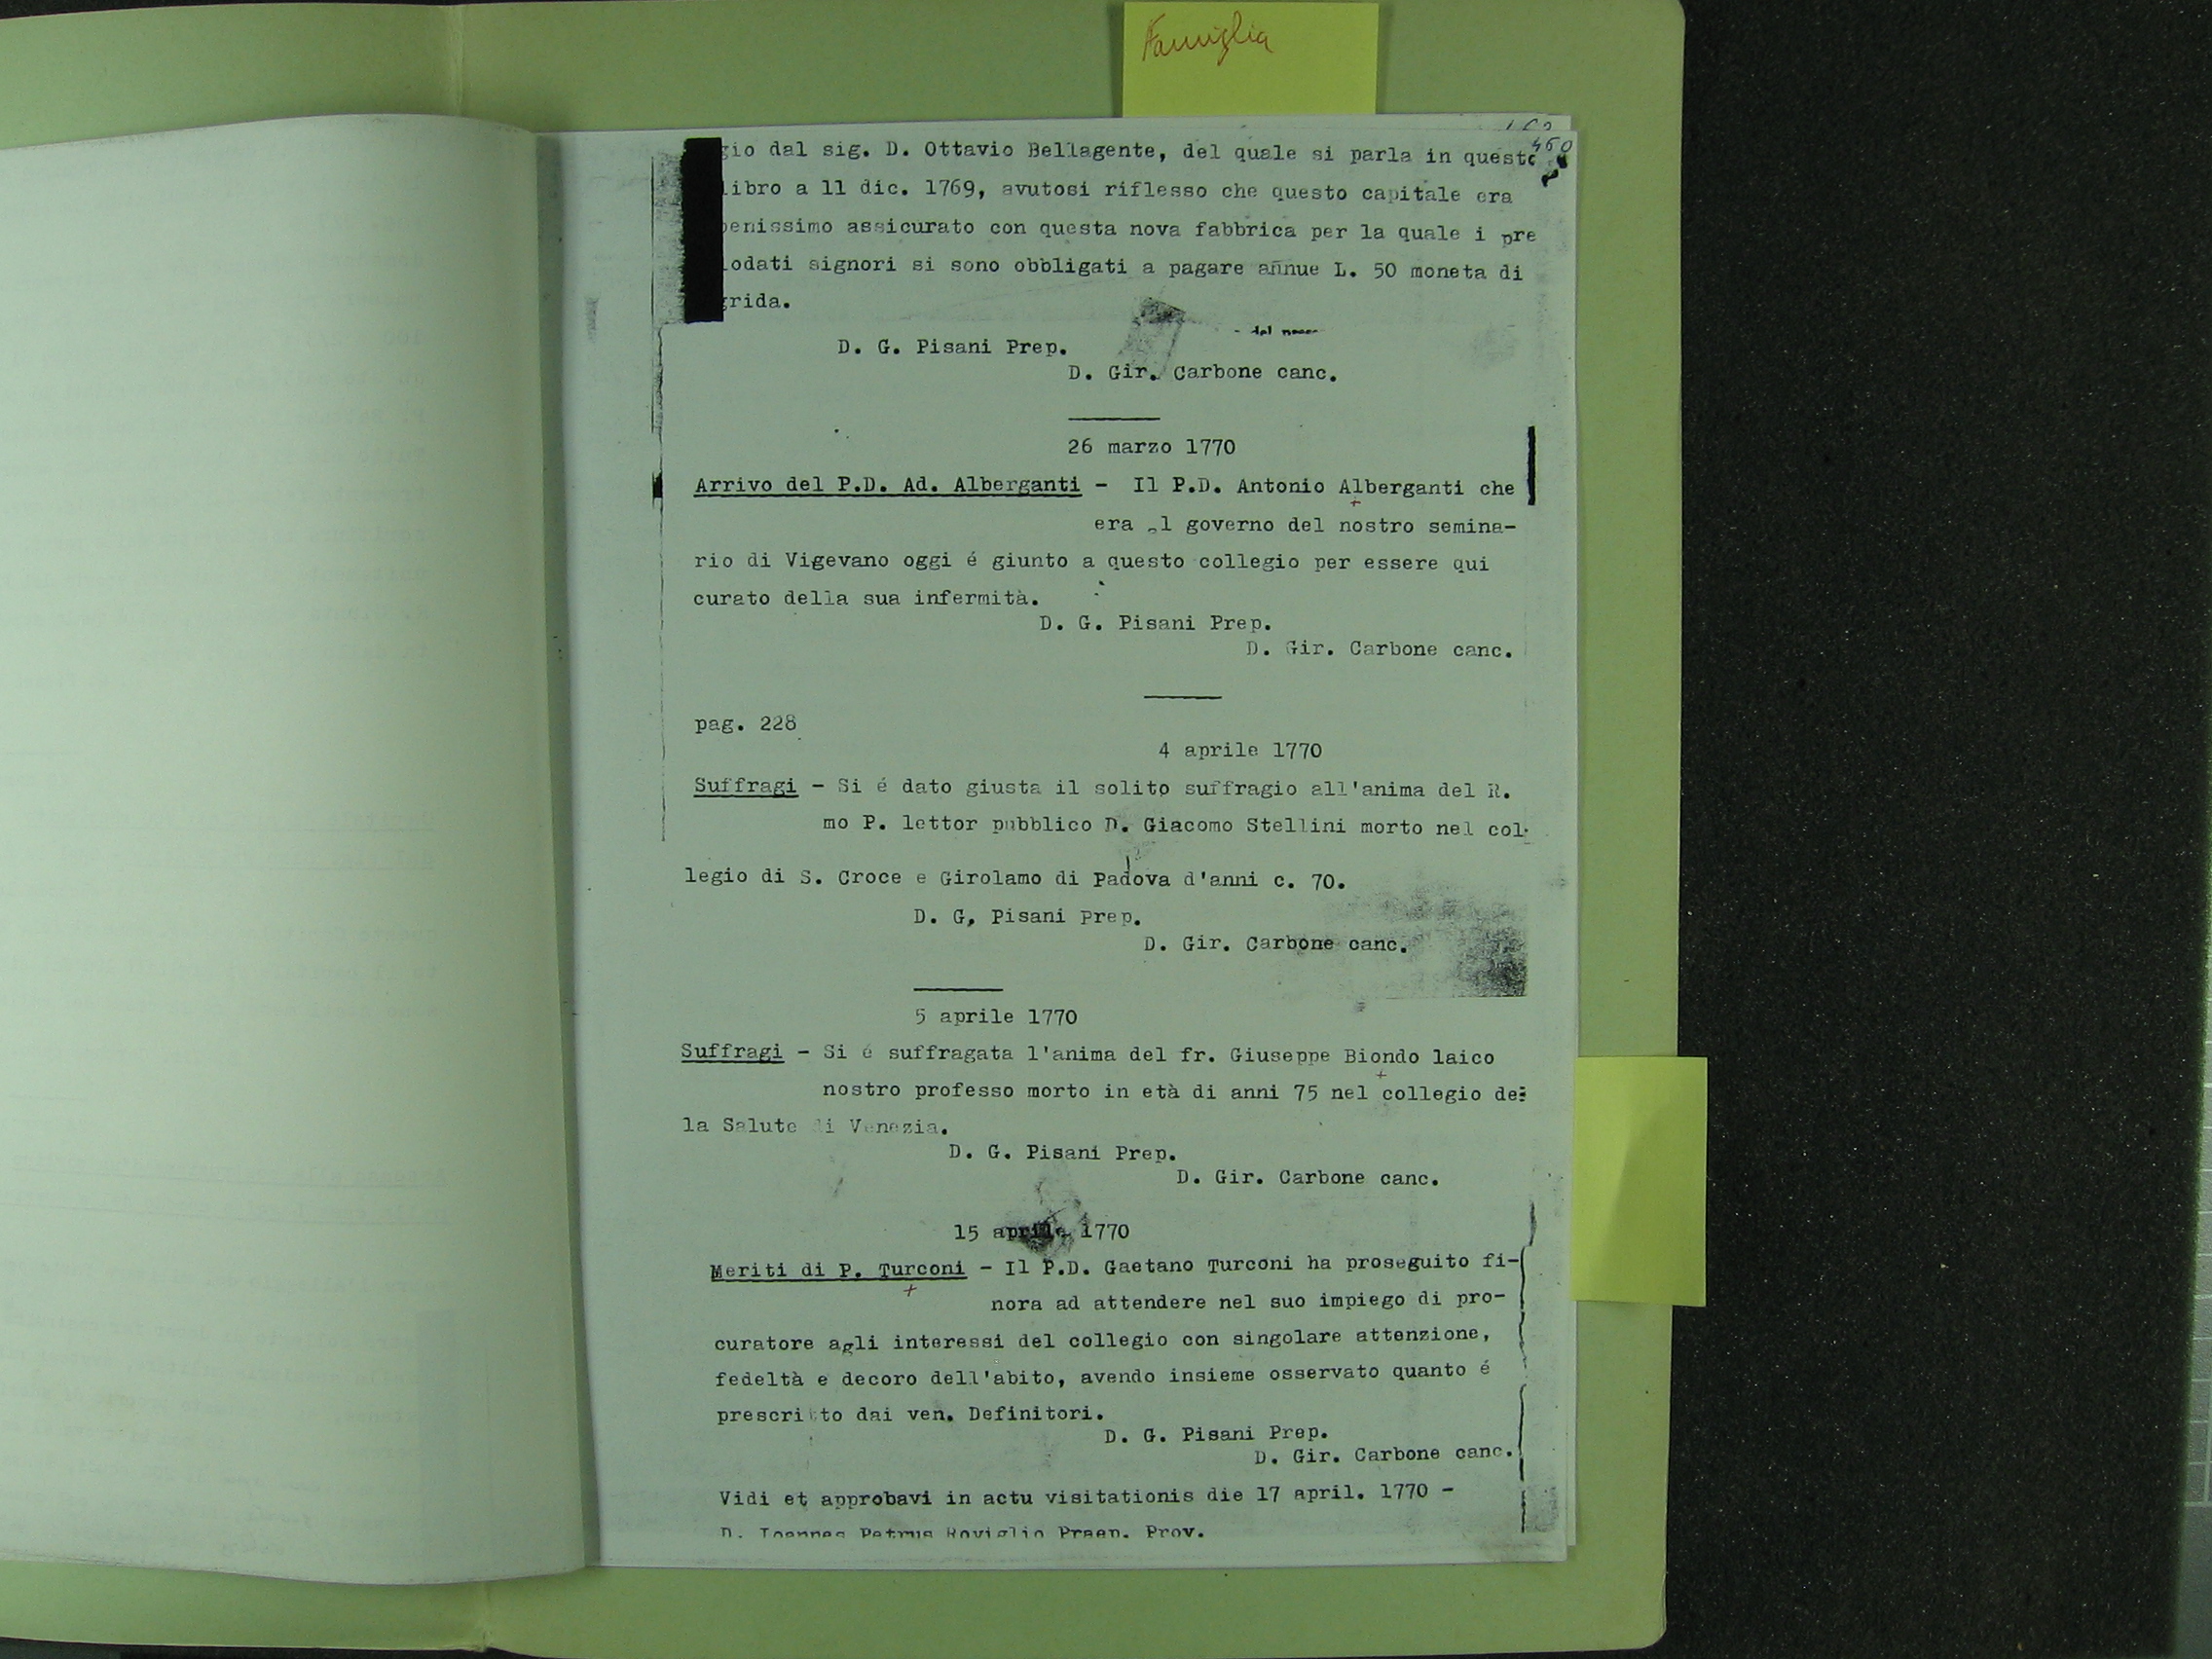 Famiglia
460
gio dal sig. D. Ottavio Bellagente, del quale si parla in questo
libro a 11 dic. 1769, avutosi riflesso che questo capitale era
benissimo assicurato con questa nova fabbrica per la quale i pre
lodati signori si sono obbligati a pagare annue L. 50 moneta di
grida.
D. G. Pisani Prep.
D. Gir. Carbone canc.
26 marzo 1770
Arrivo del P.D. Ad. Alberganti - Il P.D. Antonio Alberganti che
era al governo del nostro semina-
rio di Vigevano oggi é giunto a questo collegio per essere qui
curato della sua infermità.
D. G. Pisani Prep.
D. Gir. Carbone canc.
pag. 228
4 aprile 1770
Suffragi - Si é dato giusta il solito suffragio all'anima del R.
mo P. lettor pubblico D. Giacomo Stellini morto nel col-
legio di S. Croce e Girolamo di Padova d'anni c. 70.
D. G, Pisani Prep.
D. Gir. Carbone canc.
5 aprile 1770
Suffragi - Si é suffragata l'anima del fr. Giuseppe Biondo laico
nostro professo morto in età di anni 75 nel collegio del
la Salute di Venezia.
D. G. Pisani Prep.
D. Gir. Carbone canc.
15 aprile 1770
Meriti di P. Turconi - Il P.D. Gaetano Turconi ha proseguito fi-
nora ad attendere nel suo impiego di pro-
curatore agli interessi del collegio con singolare attenzione,
fedeltà e decoro dell'abito, avendo insieme osservato quanto é
prescritto dai ven. Definitori.
D. G. Pisani Prep.
D. Gir. Carbone canc.
Vidi et approbavi in actu visitationis die 17 april. 1770 -
D. Ioannes Petrus Roviglio Praep. Prov.